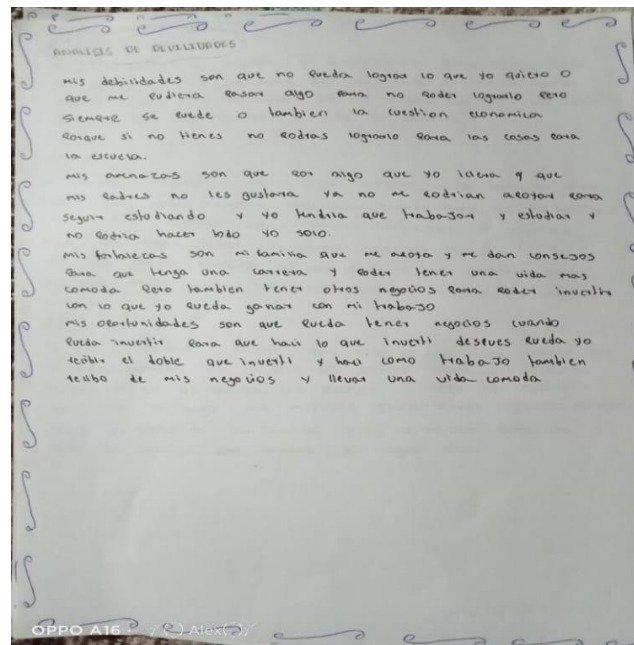 ANALISIS DE DEVILIDADES
mis debilidades son que no pueda lograr lo que yo quiero o
que me pudiera pasar algo para no poder lograrlo pero
siempre se puede o tambien la cuestion economica
porque si no tienes no podras lograrlo para las cosas para
la escuela.
mis amenazas son que por algo que yo iciera y que
mis padres no les gustara ya no me podrian apoyar para
seguir estudiando y yo tendria que trabajar y estudiar y
no podria hacer todo yo solo.
mis fortalezas son mi familia que me apoya y me dan consejos
para que tenga una carrera y poder tener una vida mas
comoda pero tambien tener otros negocios para poder invertir
con lo que yo pueda ganar con mi trabajo
mis oportunidades son que pueda tener negocios cuando
pueda invertir para que haci lo que inverti despues pueda yo
recibir el doble que inverti y haci como trabajo tambien
recibo de mis negocios y llevar una vida comoda
OPPO A16 Alex